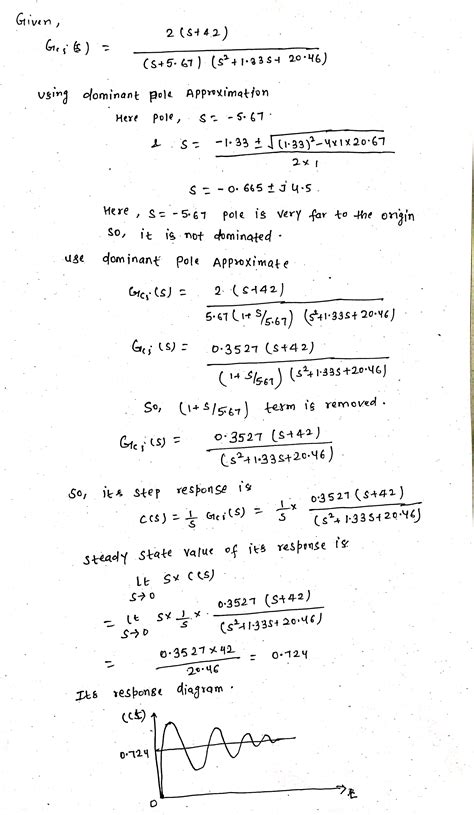 Given,
Gcj(s) = 2(s+42) / (s+5.67) (s²+1.33s+20.46)
using dominant pole Approximation
Here pole, s = -5.67.
& s = -1.33 ± √(1.33)²-4×1×20.67 / 2×1
s = -0.665 ± j 4.5.
Here, s = -5.67 pole is very far to the origin
so, it is not dominated.
use dominant pole Approximate
Gcj(s) = 2 (s+42) / 5.67 (1+ s/5.67) (s²+1.33s+20.46)
Gcj(s) = 0.3527 (s+42) / (1+ s/567) (s²+1.33s+20.46)
So, (1+s/5.67) term is removed.
Gcj(s) = 0.3527 (s+42) / (s²+1.33s+20.46)
So, its step response is
C(s) = 1/s Gcj(s) = 1/s × 0.3527 (s+42) / (s²+1.33s+20.46)
steady state value of its response is
Lt s→0 s× C(s)
= Lt s→0 s × 1/s × 0.3527 (s+42) / (s²+1.33s+20.46)
= 0.3527×42 / 20.46 = 0.724
Its response diagram.
C(t)
0.724
0
t